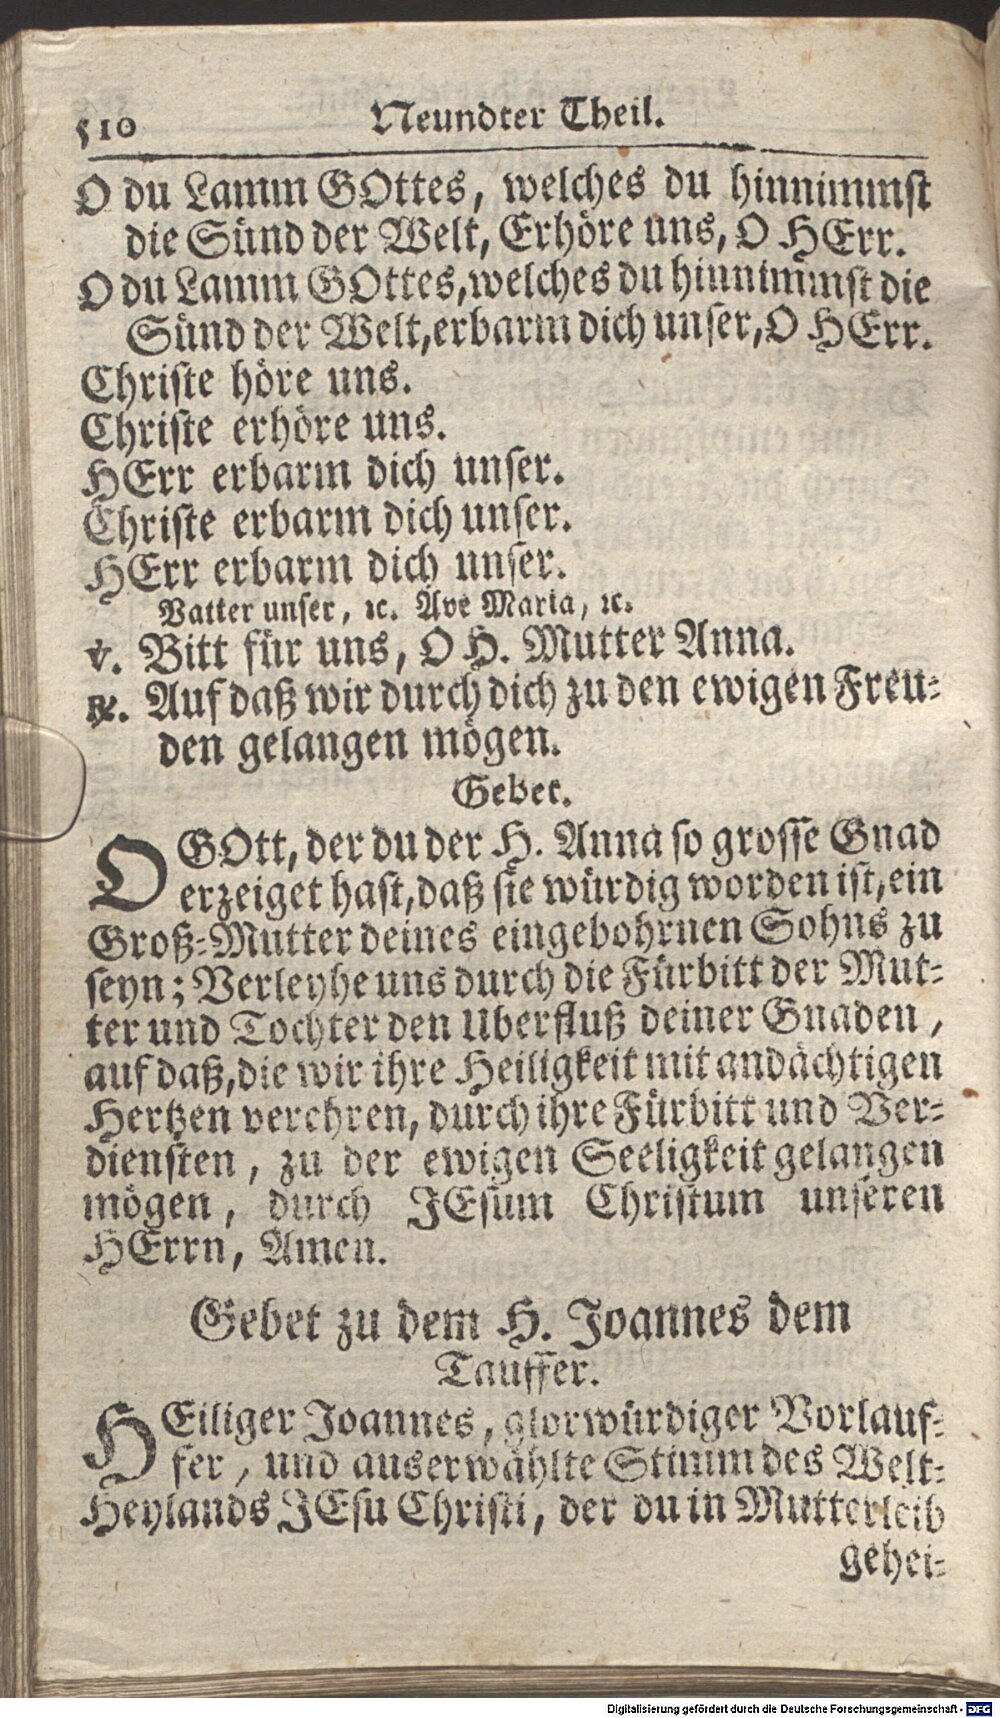 510 Neundter Theil.
O du Lamm GOttes, welches du hinnimmst
die Sünd der Welt, Erhöre uns, O HErr.
O du Lamm GOttes, welches du hinnimmst die
Sünd der Welt, erbarm dich unser, O HErr.
Christe höre uns.
Christe erhöre uns.
HErr erbarm dich unser.
Christe erbarm dich unser.
HErr erbarm dich unser.
Vatter unser, ꝛc. Ave Maria, ꝛc.
℣. Bitt für uns, O H. Mutter Anna.
℟. Auf daß wir durch dich zu den ewigen Freu-
den gelangen mögen.
Gebet.
O GOtt, der du der H. Anna so grosse Gnad
erzeiget hast, daß sie würdig worden ist, ein
Groß-Mutter deines eingebohrnen Sohns zu
seyn; Verleyhe uns durch die Fürbitt der Mut-
ter und Tochter den Uberfluß deiner Gnaden,
auf daß, die wir ihre Heiligkeit mit andächtigen
Hertzen verehren, durch ihre Fürbitt und Ver-
diensten, zu der ewigen Seeligkeit gelangen
mögen, durch JEsum Christum unseren
HErrn, Amen.
Gebet zu dem H. Joannes dem
Tauffer.
HEiliger Joannes, glorwürdiger Vorlauf-
fer, und auserwählte Stimm des Welt-
Heylands JEsu Christi, der du in Mutterleib
gehei-
Digitalisierung gefördert durch die Deutsche Forschungsgemeinschaft - DFG